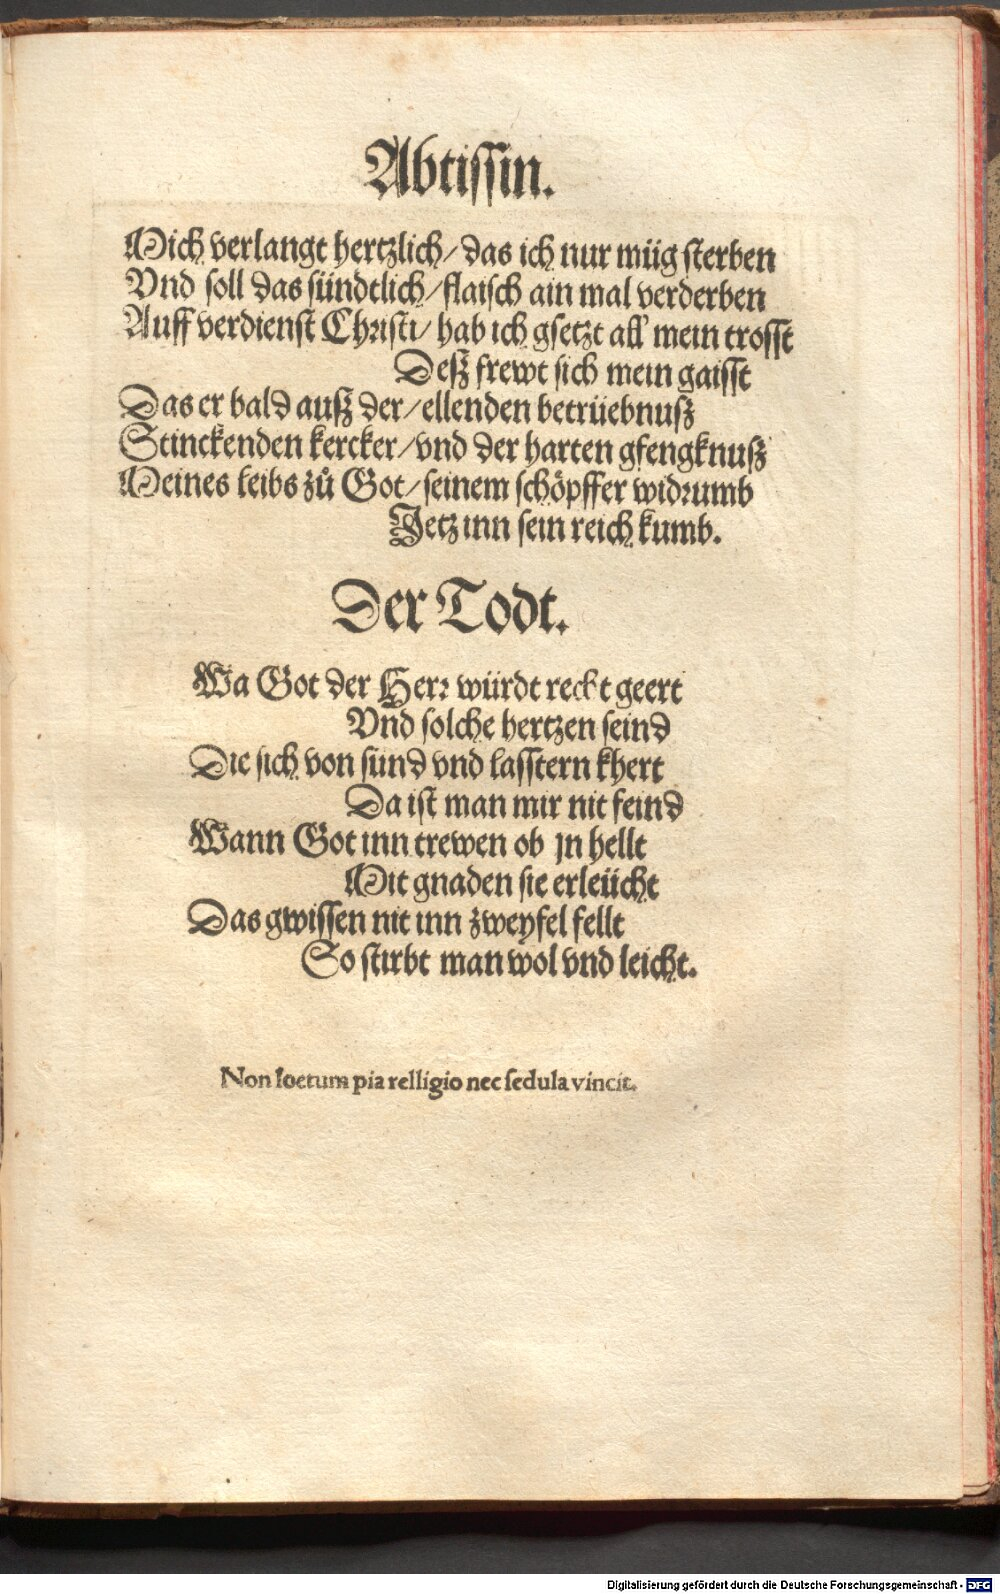 Abtissin.
Mich verlangt hertzlich/ das ich nur müg sterben
Vnd soll das sündtlich/ flaisch ain mal verderben
Auff verdienst Christi/ hab ich gsetzt all mein trosst
Deß frewt sich mein gaisst
Das er bald auß der/ ellenden betrüebnuß
Stinckenden kercker/ vnd der harten gfengknuß
Meines leibs zů Got/ seinem schöpffer widrumb
Jetz inn sein reich kumb.
Der Todt.
Wa Got der Herr würdt reckt geert
Vnd solche hertzen seind
Die sich von sünd vnd lasstern khert
Da ist man mir nit feind
Wann Got inn trewen ob jn hellt
Mit gnaden sie erleücht
Das gwissen nit inn zweyfel fellt
So stirbt man wol vnd leicht.
Non loetum pia relligio nec sedula vincit.
Digitalisierung gefördert durch die Deutsche Forschungsgemeinschaft - DFG